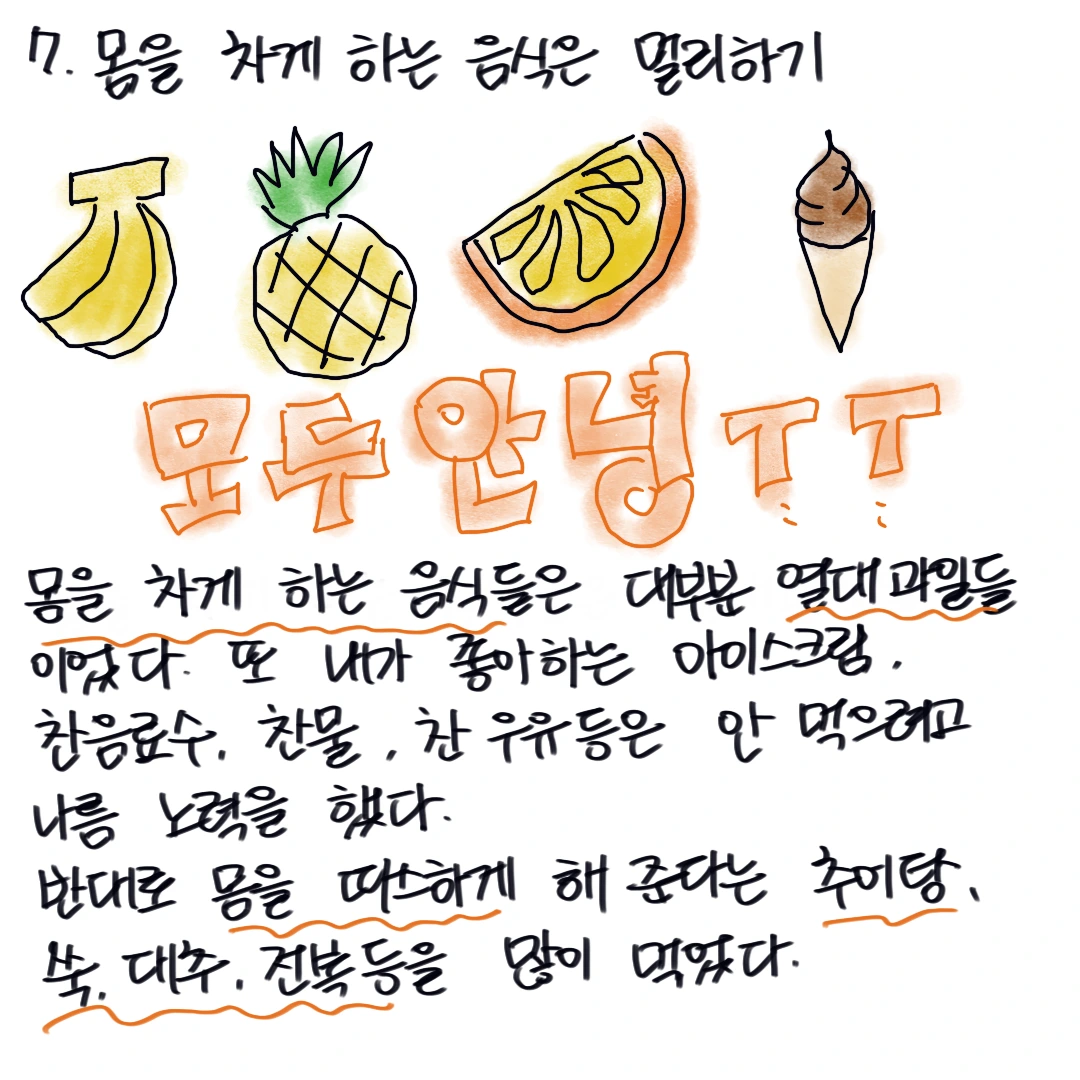 7. 몸을 차게 하는 음식은 멀리하기
모두안녕ㅜㅜ
몸을 차게 하는 음식들은 대부분 열대과일들
이었다. 또 내가 좋아하는 아이스크림,
찬음료수, 찬물, 찬 우유등은 안 먹으려고
나름 노력을 했다.
반대로 몸을 따스하게 해 준다는 추어탕,
쑥, 대추, 전복등을 많이 먹었다.